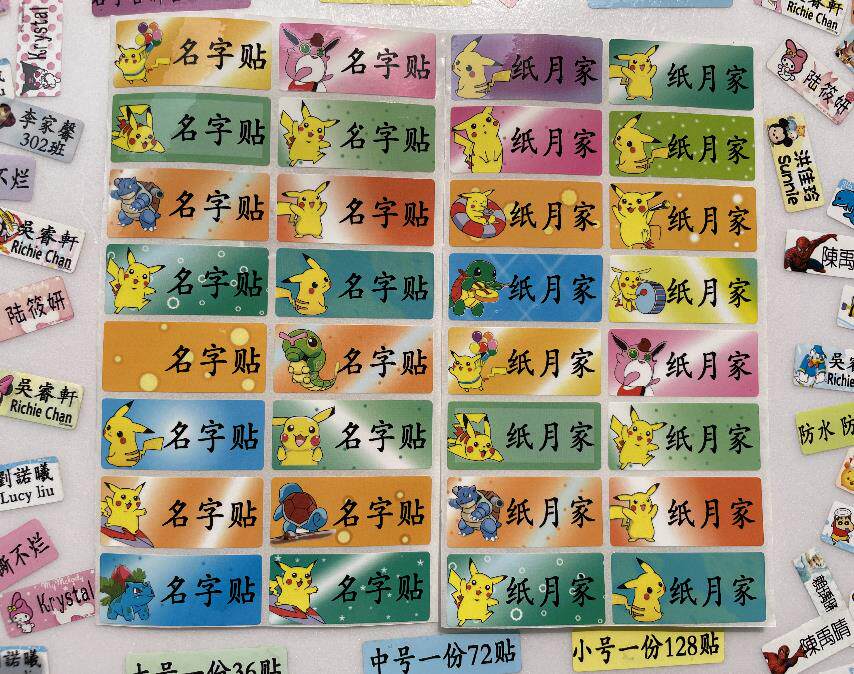 Krystal
Richie Chan
名字贴 名字贴 纸月家 纸月家
名字贴 名字贴 纸月家 纸月家
名字贴 名字贴 纸月家 纸月家
名字贴 名字贴 纸月家 纸月家
名字贴 名字贴 纸月家 纸月家
名字贴 名字贴 纸月家 纸月家
名字贴 名字贴 纸月家 纸月家
名字贴 名字贴 纸月家 纸月家
李家馨
302班
不烂
吳睿軒
Richie Chan
陆筱妍
吳睿軒
Richie Chan
劉諾曦
Lucy liu
撕不烂
My Melody
Krystal
諾曦
吳睿軒
Richie Chan
陆筱妍
洪佳玲
Sunnie
陳禹
吳睿
Richie
防水 防
陳禹晴
大号一份36贴
中号一份72贴
小号一份128贴